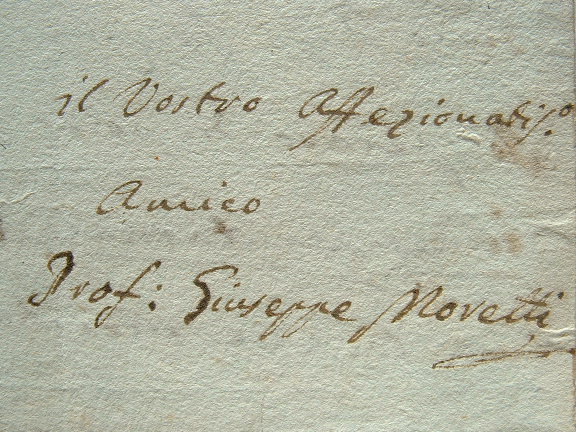 il Vostro Affezionatis.o
Amico
Prof: Giuseppe Moretti